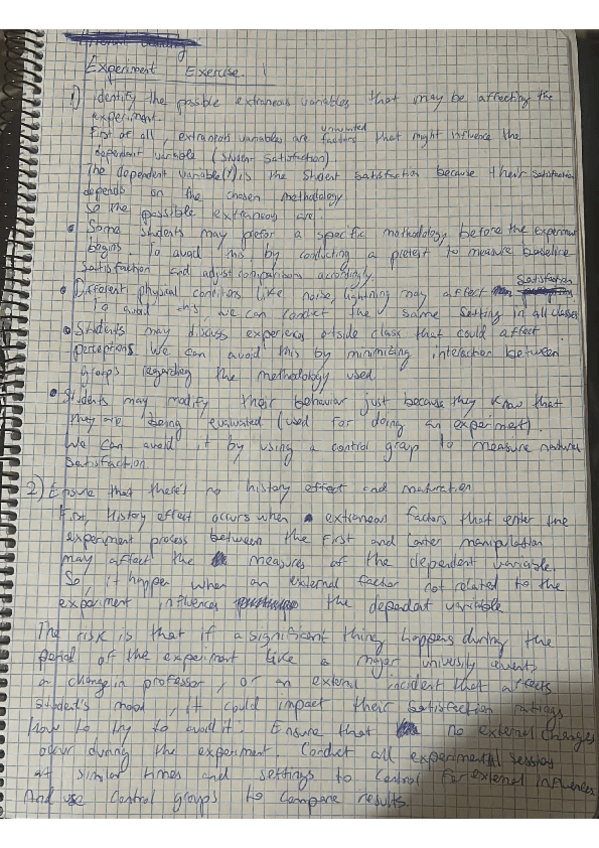 Experiment Exercise 1
1) identify the posible extraneous variables that may be affecting the
experiment.
First of all, extraneous variables are unwanted factors that might influence the
dependent variable (student satisfaction)
The dependent variable (Y) is the student satisfaction because their satisfaction
depends on the chosen methodology
So the possible extraneous are:
• Some students may prefer a specific methodology before the experiment
begins. To avoid this by conducting a pretest to measure baseline
satisfaction and adjust comparisons accordingly
• Different physical conditions like noise, lightning may affect satisfaction
To avoid this, we can conduct the same setting in all classes
• Students may discuss experiences outside class that could affect
perceptions. We can avoid this by minimizing interaction between
groups regarding the methodology used
• Students may modify their behavior just because they know that
they are being evaluated (used for doing an experiment).
We can avoid it by using a control group to measure natural
satisfaction
2) Ensure that there's no history effect and maturation
First, History effect occurs when extraneous factors that enter the
experiment process between the first and later manipulation
may affect the measures of the dependent variable.
So, it happen when an external factor not related to the
experiment influences the dependent variable
The risk is that if a significant thing happens during the
period of the experiment like a major university events
a change in professor, or an external incident that affects
student's mood, it could impact their satisfaction ratings
How to try to avoid it: Ensure that no external changes
occur during the experiment. Conduct all experimental sessions
at similar times and settings to control for external influences
And use control groups to compare results.